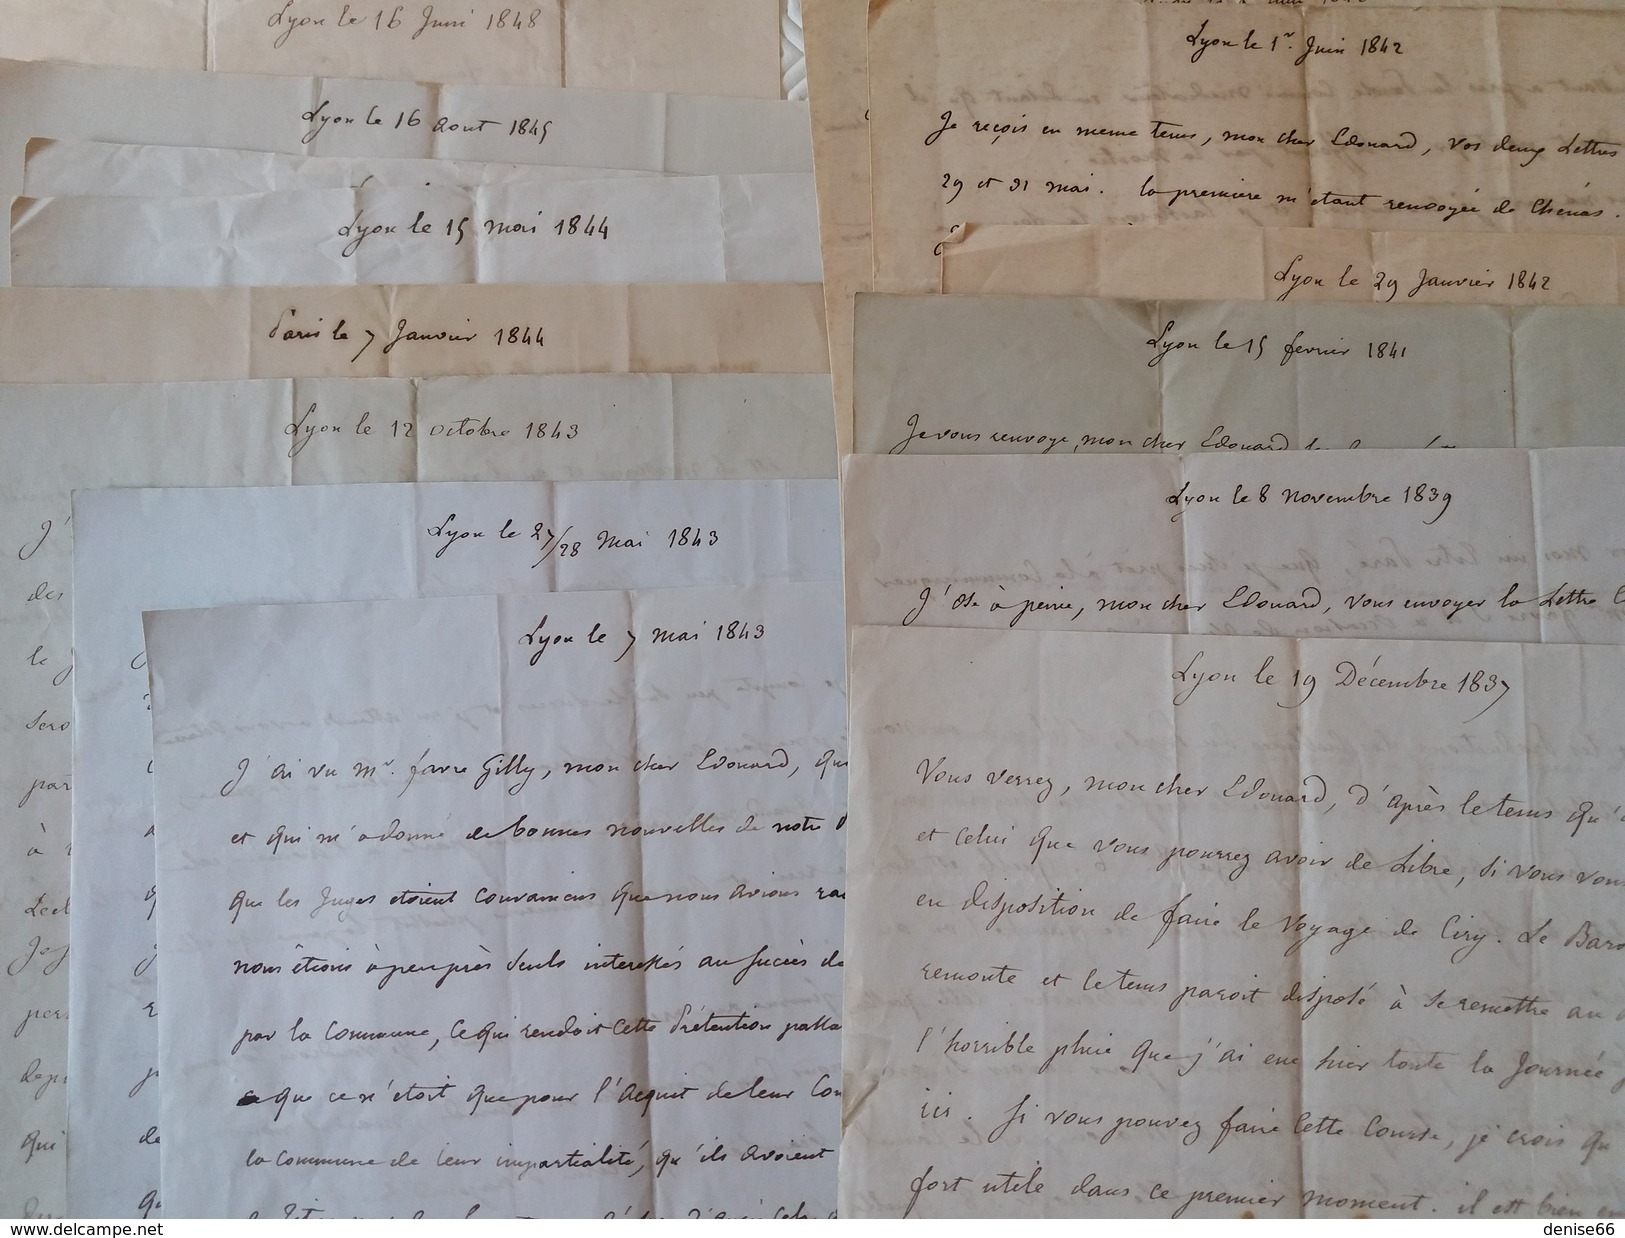 Lyon le 16 Juin 1848
Lyon le 16 aout 1845
Lyon le 15 mai 1844
Paris le 7 Janvier 1844
Lyon le 12 octobre 1843
J'
des
le
sero
par
à
Lyon le 27/28 Mai 1843
Lyon le 7 mai 1843
J'ai vu mr. favre Gilly, mon cher Edouard, qu
et qui m'a donné de bonnes nouvelles de notre
que les Juges etoient convaincus que nous avions
nous étions à peu près seuls interessés au succès de
par la Commune, ce qui rendoit cette Prétention
que ce n'étoit que pour l'acquit de leur Con
la commune de leur impartialité, qu'ils avoient
pers
depu
qui
de
qu
Lyon le 1r. Juin 1842
Je reçois en meme tems, mon cher Edouard, vos deux Lettres
29 et 31 mai. la premiere m'étant renvoyée de Chénas.
Lyon le 29 Janvier 1842
Lyon le 15 fevrier 1841
Je vous renvoye, mon cher Edouard
Lyon le 8 novembre 1839
J'ose à peine, mon cher Edouard, vous envoyer la Lettre
Lyon le 19 Décembre 1837
Vous verrez, mon cher Edouard, d'après le tems qu'
et celui que vous pourrez avoir de Libre, si vous vous
en disposition de faire le Voyage de Ciry. Le Baro
remonte et le tems paroit disposé à se remettre au
l'horrible pluie que j'ai eue hier toute la Journée
ici. Si vous pouvez faire cette Course, je crois qu
fort utile dans ce premier moment. il est bien en
denise66